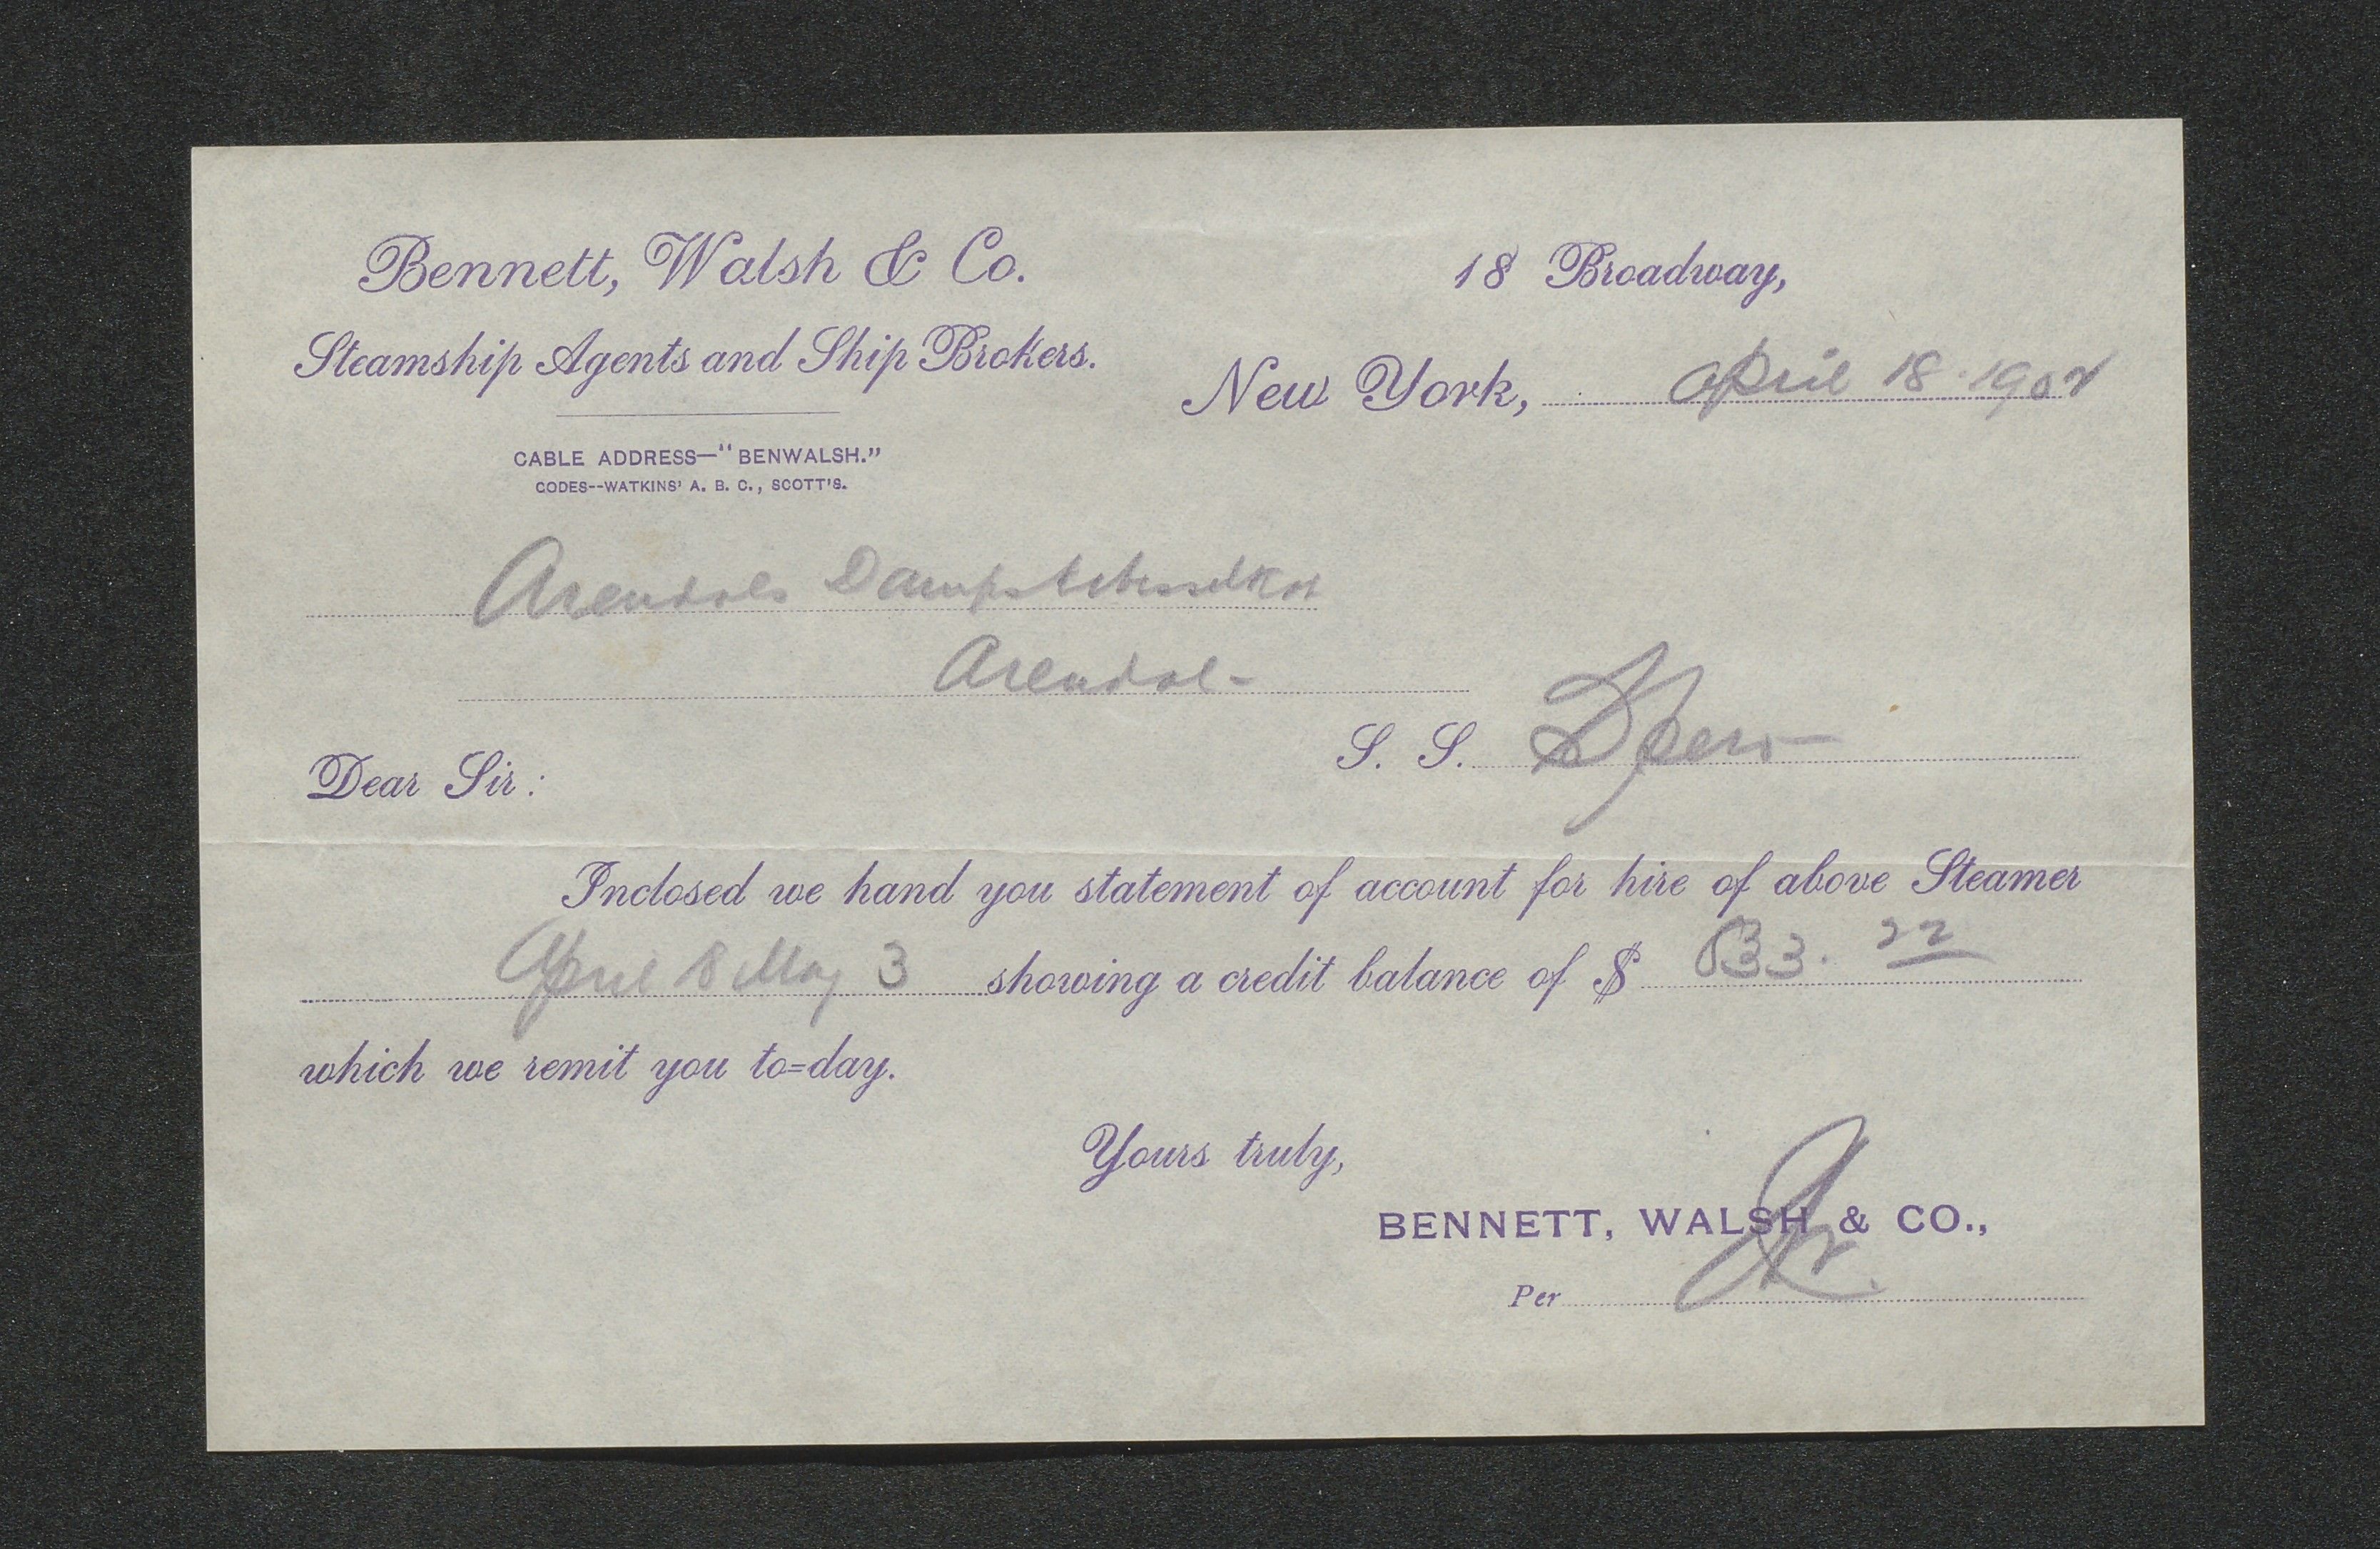 Bennett, Walsh & Co.
Steamship Agents and Ship Brokers.
CABLE ADDRESS—"BENWALSH."
CODES--WATKINS' A. B. C., SCOTT'S.
18 Broadway,
New York, April 18 . 1902
Arendals
Arendal-
S. S. Spero
Dear Sir:
Inclosed we hand you statement of account for hire of above Steamer
April 18 May 3 showing a credit balance of $ 33. 22
which we remit you to=day.
Yours truly,
BENNETT, WALSH & CO.,
Per